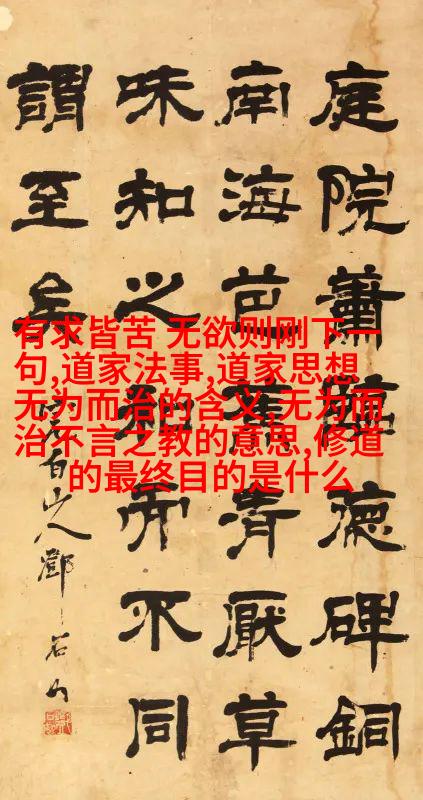 庭院蕭德碑銅
南海芭青厭草
味知之和而不同
謂至矣
完白山人鄧石如
有求皆苦 无欲则刚下一
句,道家法事,道家思想
无为而治的含义,无为而
治不言之教的意思,修道
的最终目的是什么